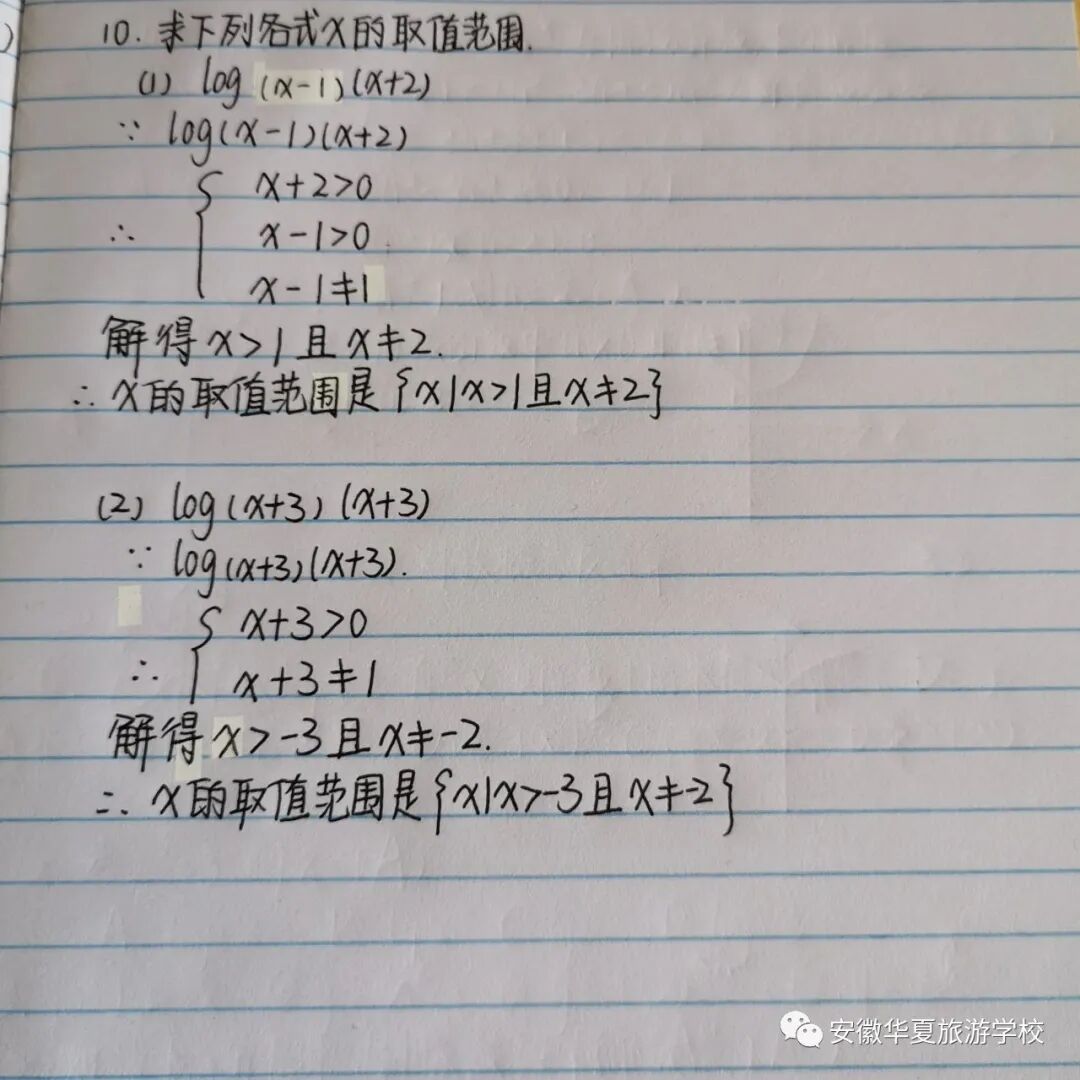 10. 求下列各式x的取值范围.
(1) log (x-1) (x+2)
∵ log(x-1)(x+2)
{ x+2>0
∴ x-1>0
x-1≠1
解得x>1且x≠2.
∴x的取值范围是{x|x>1且x≠2}
(2) log(x+3) (x+3)
∵ log(x+3)(x+3).
{ x+3>0
∴ x+3≠1
解得x>-3且x≠-2.
∴ x的取值范围是{x|x>-3且x≠-2}
安徽华夏旅游学校